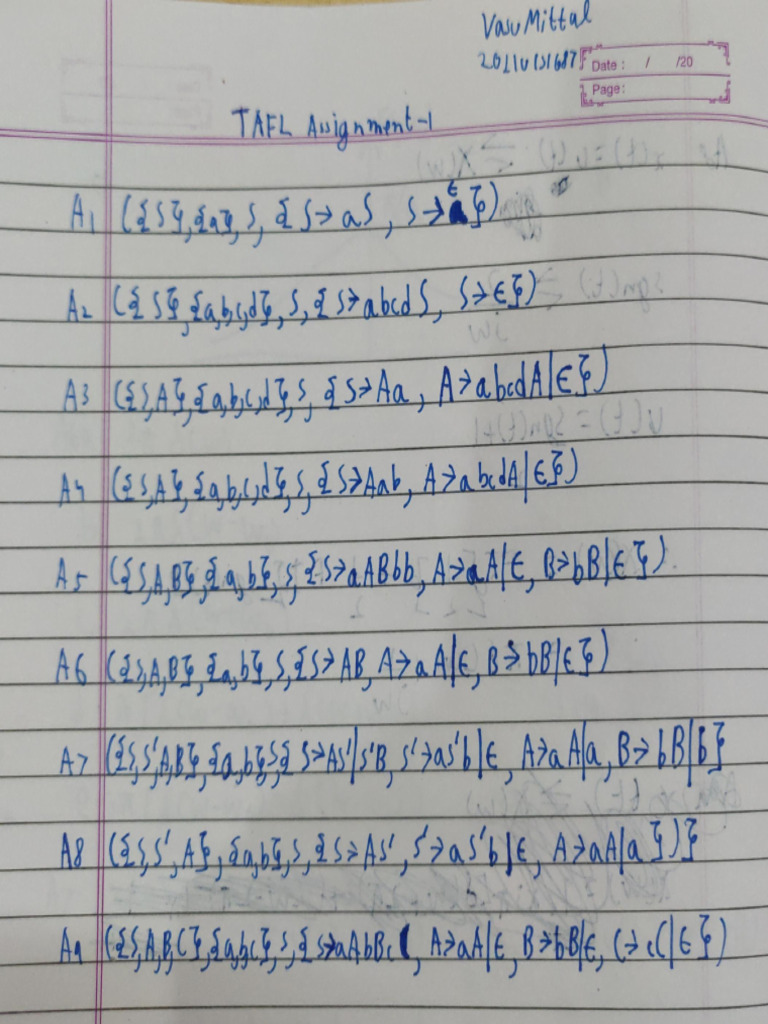 Vasu Mittal
Date : / /20
Page:
TAFL Assignment-1
A1 ({S}, {a}, S, {S→aS, S→ϵ})
A2 ({S}, {a,b,c,d}, S, {S→abcdS, S→ϵ})
A3 ({S,A}, {a,b,c,d}, S, {S→Aa, A→abcdA|ϵ})
A4 ({S,A}, {a,b,c,d}, S, {S→Aab, A→abcdA|ϵ})
A5 ({S,A,B}, {a,b}, S, {S→aABbb, A→aA|ϵ, B→bB|ϵ})
A6 ({S,A,B}, {a,b}, S, {S→AB, A→aA|ϵ, B→bB|ϵ})
A7 ({S,S',A,B}, {a,b}, S, {S→AS'|S'B, S'→aS'b|ϵ, A→aA|a, B→bB|b}
A8 ({S,S',A}, {a,b}, S, {S→AS', S'→aS'b|ϵ, A→aA|a})}
A9 ({S,A,B,C}, {a,b,c}, S, {S→aAbBcC, A→aA|ϵ, B→bB|ϵ, C→cC|ϵ})